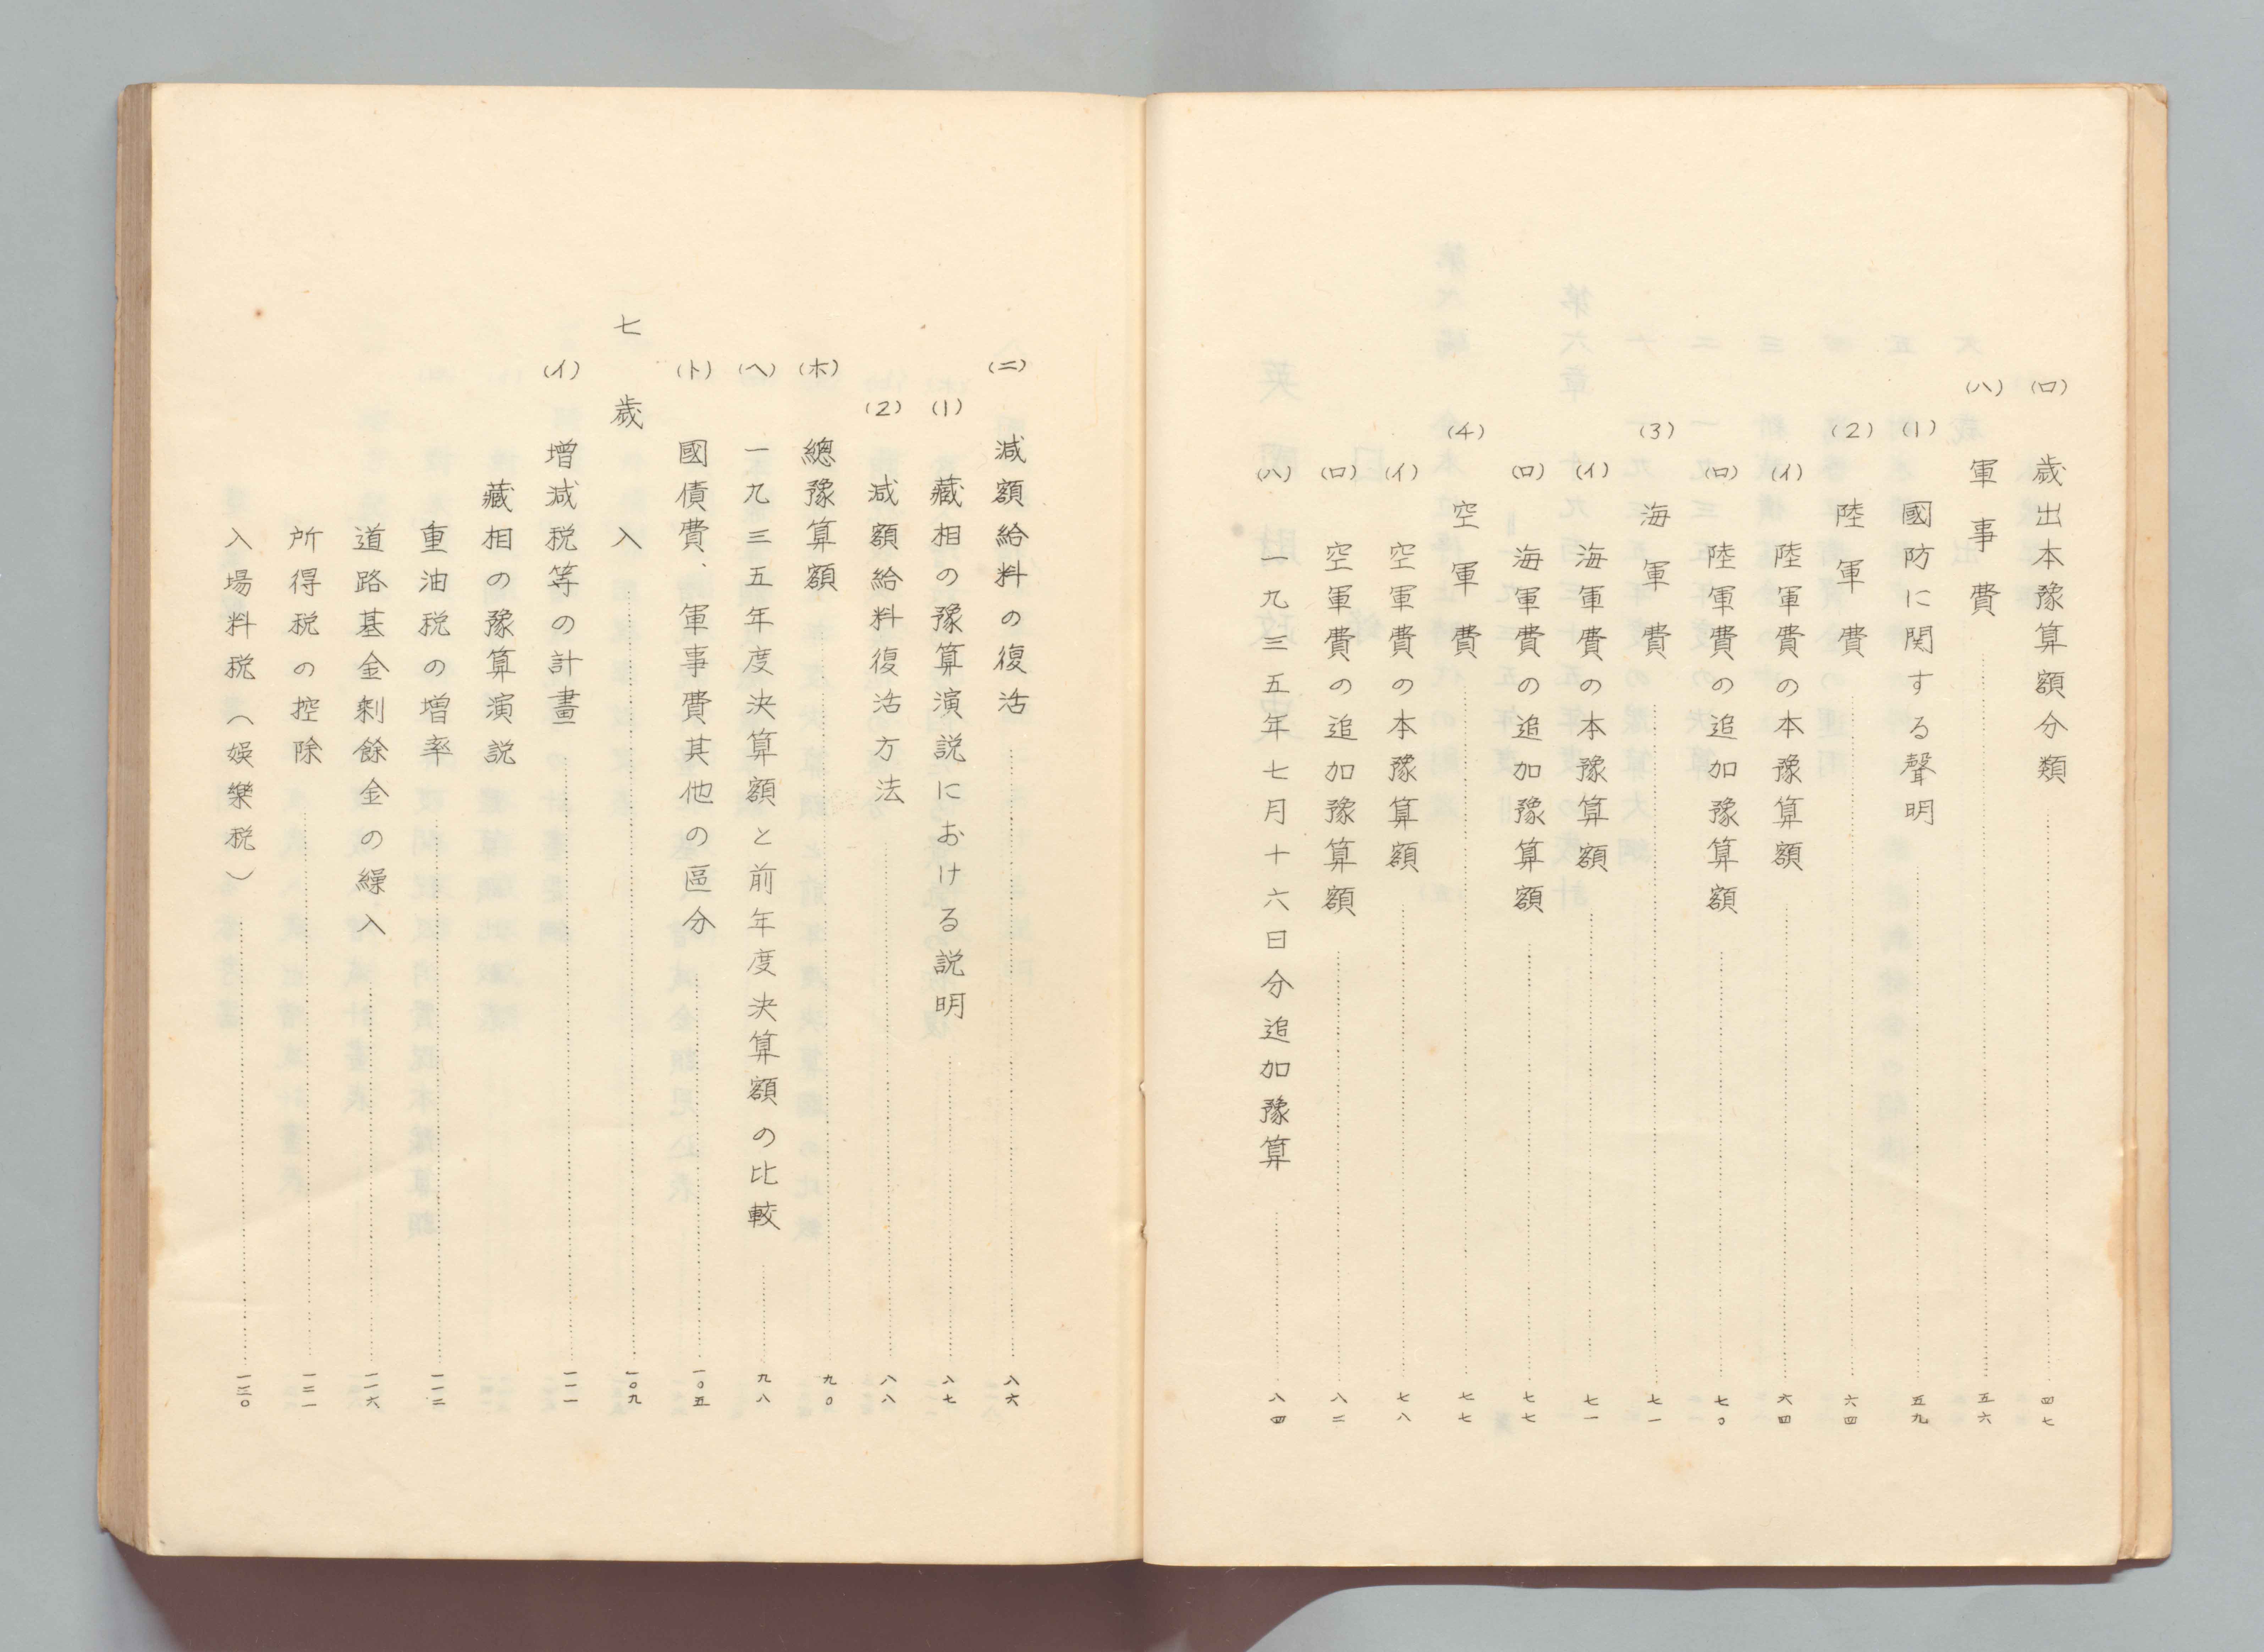 (ロ) 歳出本豫算額分類 四七
(ハ) 軍事費 五六
(1) 國防に関する聲明 五九
(2) 陸軍費 六四
(イ) 陸軍費の本豫算額 六四
(ロ) 陸軍費の追加豫算額 七〇
(3) 海軍費 七一
(イ) 海軍費の本豫算額 七一
(ロ) 海軍費の追加豫算額 七七
(4) 空軍費 七七
(イ) 空軍費の本豫算額 七八
(ロ) 空軍費の追加豫算額 八二
(ハ) 一九三五年七月十六日分追加豫算 八四
(ニ) 減額給料の復活 八六
(1) 藏相の豫算演説における説明 八七
(2) 減額給料復活方法 八八
(ホ) 總豫算額 九〇
(ヘ) 一九三五年度決算額と前年度決算額の比較 九八
(ト) 國債費、軍事費其他の區分 一〇五
七 歳入 一〇九
(イ) 増減税等の計畫 一一一
藏相の豫算演説
重油税の増率 一一二
道路基金剰餘金の繰入 一一六
所得税の控除 一二一
入場料税（娯樂税） 一三〇